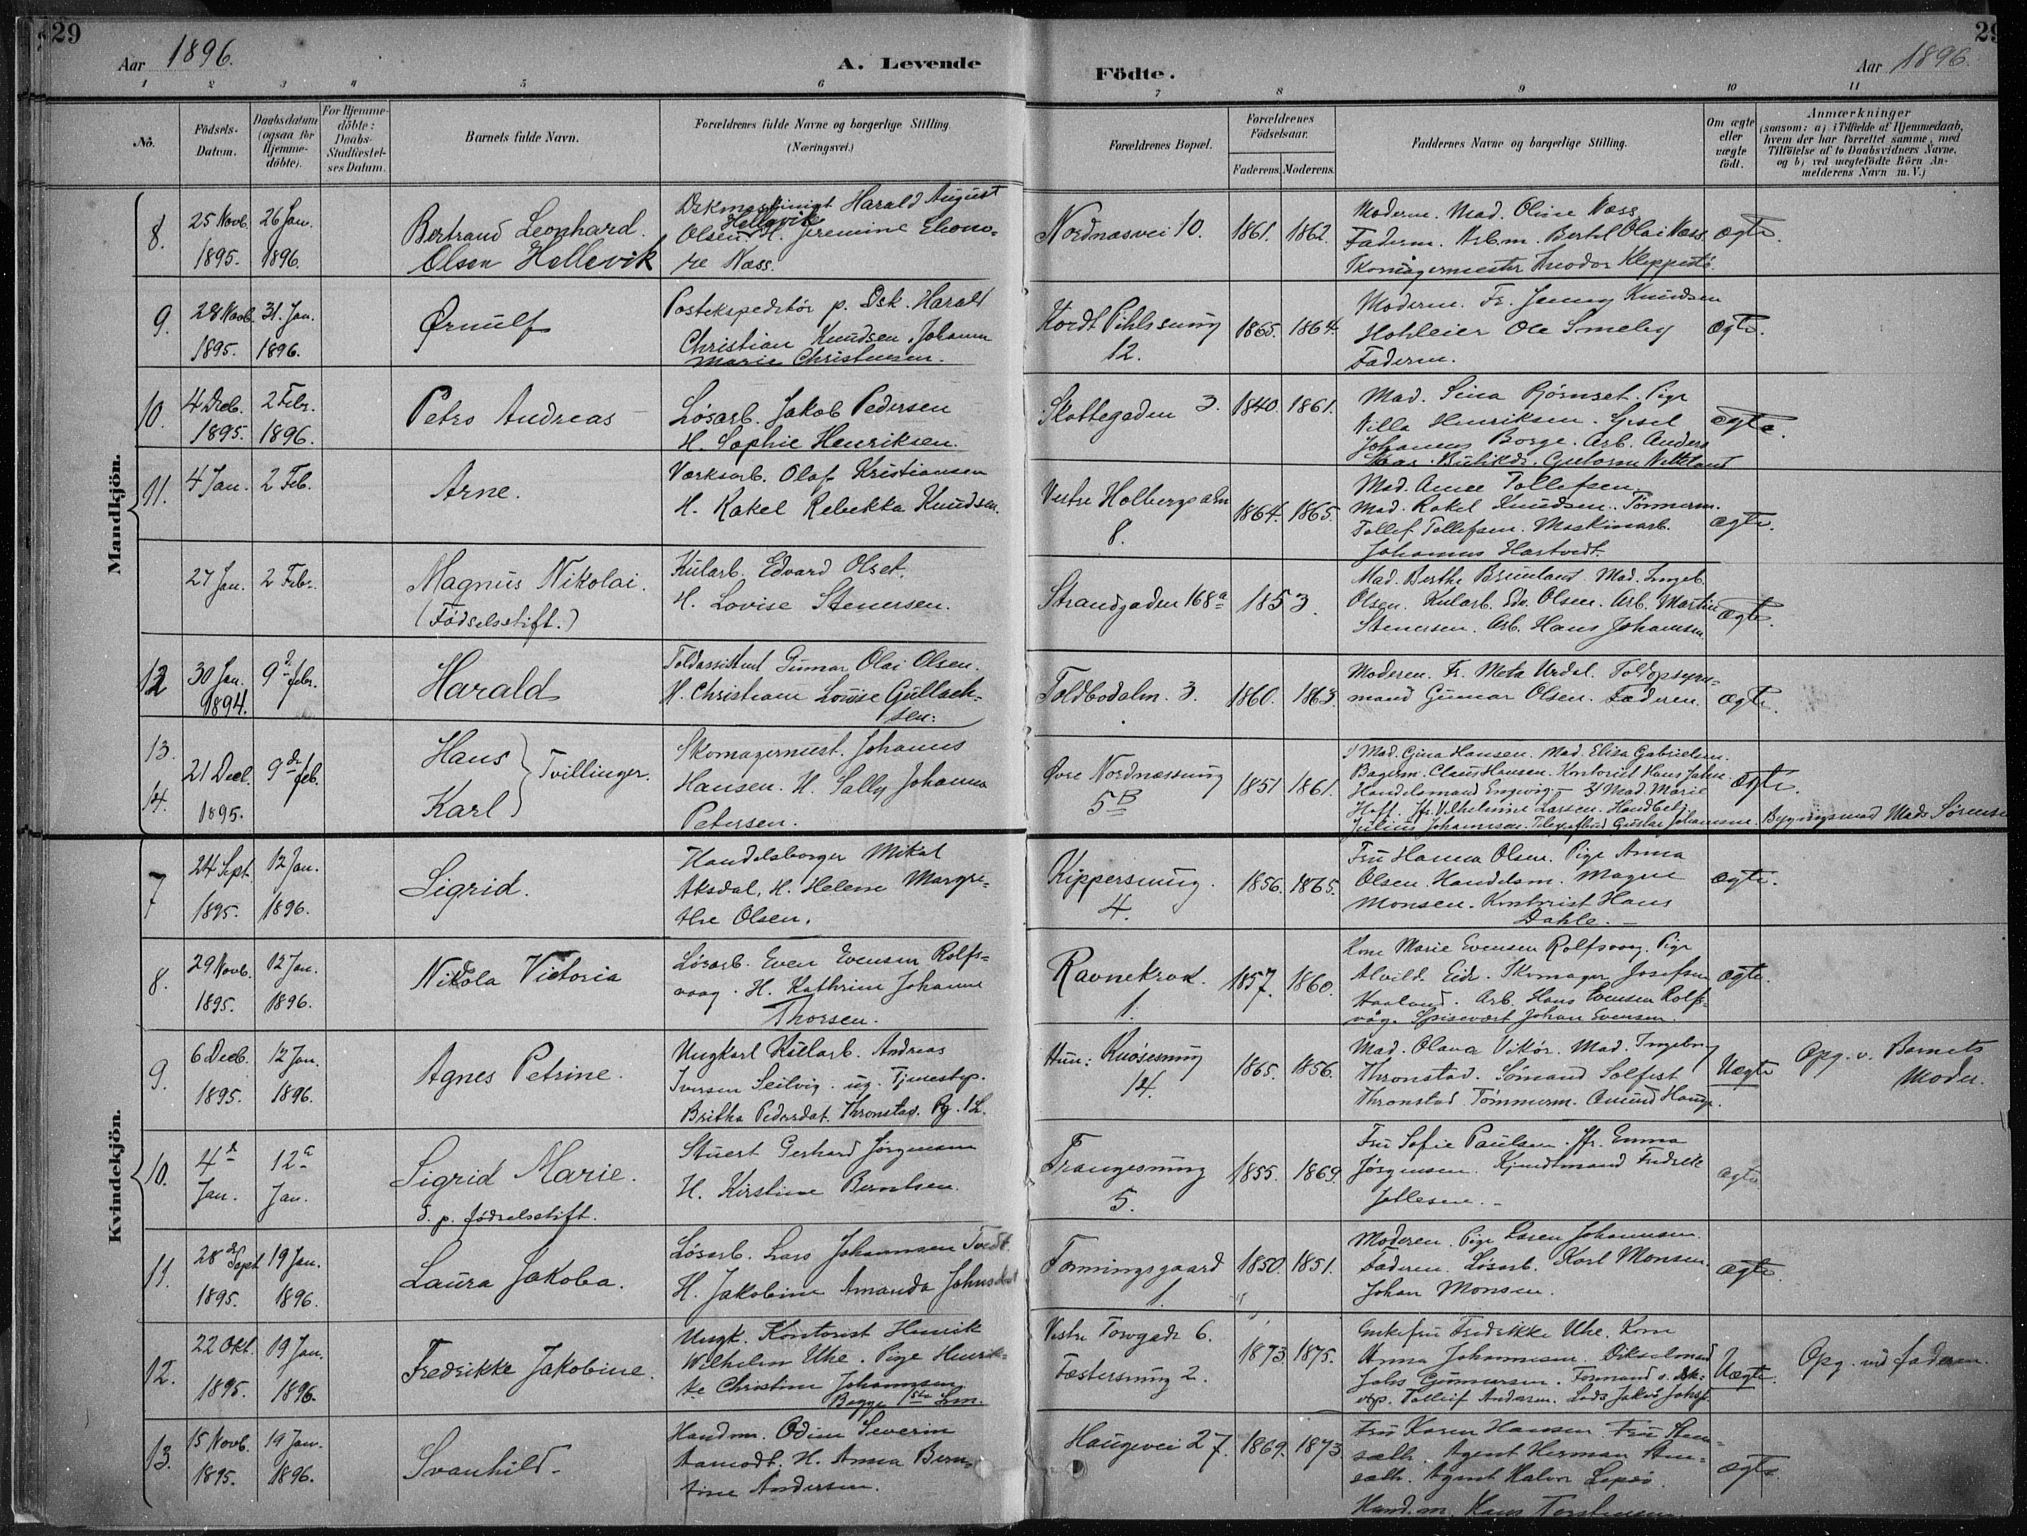 29
Aar 1896.
A. Levende
Födte.
Aar 1896.
29
1 2 3 4 5 6 7 8 9 10 11
No.
Födsels-Datum.
Daabsdatum (ogsaa for Hjemme-döbte).
For Hjemme-döbte: Daabs-Stadfæstel-ses Datum.
Barnets fulde Navn.
Forældrenes fulde Navne og borgerlige Stilling. (Næringsvei.)
Forældrenes Bopæl.
Forældrenes Födselsaar.
Faderens. Moderens.
Faddernes Navne og borgerlige Stilling.
Om ægte eller uægte födt.
Anmærkninger
(saasom: a) i Tilfælde af Hjemmedaab, hvem der har forrettet samme, med Tilföielse af to Daabsvidners Navne, og b) ved uægtefödte Börn An-melderens Navn m. V.)
Mandkjön.
8. 25 Novb. 1895. 26 Jan. 1896.
Bertrand Leonhard.
Olsen Hellevik
Harald August
Olsen Hellevik H. Jeremine Eleono-
re Næss.
Nordnæsvei 10. 1861. 1862.
Moderen. Mad. Oline Næss
Faderen. Arbm. Bertel Olai Næss
Skomagermester Theodor Kleppestø.
ægte.
9. 28 Novb. 1895. 31. Jan. 1896.
Ørnulf
Postekspeditør p. Dsk. Harald
Christian Knudsen. Johanne
Marie Christensen.
Kordt Pihlssmug 12. 1865. 1864.
Moderen. Fr. Jenny Knudsen
Ole Smeby
Faderen.
ægte.
10. 4 Decb. 1895. 2 Febr. 1896.
Petro Andreas
Løsarb. Jakob Pedersen
H. Sophie Henriksen.
Skottegaden 3. 1840. 1861.
Mad. Sina Bjørnset. Pige
Villa Henriksen.
Johannes Borge. Arb. Anders
ægte.
11. 4 Jan. 2 Feb.
Arne.
Værksarb. Olaf Kristiansen
H. Rakel Rebekka Knudsen.
Vestre Holbergs alm 8. 1864. 1865.
Mad. Tollefsen.
Mad. Rakel Knudsen. Tømmerm.
Tollef Tollefsen. Maskinarb.
Johannes Hartvedt.
ægte.
27 Jan. 2 Febr.
Magnus Nikolai.
(Fødselsstift.)
Kularb. Edvard Olset.
H. Lovise Stenersen.
Strandgaden 168a 1853.
Mad. Berthe Mad. Ingeb.
Olsen. Kularb. Edv. Olsen. Arb. Martin
Stenersen. Arb. Hans Johansen
ægte.
12 30 Jan. 1894. 9de febr.
Harald
Toldassistent Gunnar Olai Olsen.
H. Christiane Louise Gullach-
sen.
Toldbodalm. 3. 1860. 1863.
Moderen. Fr. Meta Urdal. Toldopsyns-
mand Gunnar Olsen. Faderen.
ægte.
13. 14. 21 Decb. 1895. 9de feb.
Hans
Karl } Tvillinger.
Skomagermest. Johannes
Hansen. H. Sally Johanna
Petersen.
Øvre Nordnæssmug 5B 1851 1861.
1/ Mad. Gina Hansen. Mad. Elisa Gabrielsen.
Bagerm. Claus Hansen. Kontorist Hans Jahn
Handelsmand Engevig. 2/ Mad. Marie
Hoff. Jfr. Vilhelmine Larsen. Handbetj.
Julius Johannesen. Telegrafbud Gustav Johannesen. Bygningssnd Mads Sørensen
ægte.
Kvindekjön.
7 24 Sept. 1895. 12 Jan. 1896.
Sigrid.
Handelsborger Mikal
Aksdal, H. Helene Margre-
the Olsen.
Kippersmug. 4. 1856. 1865.
Fru Hanna Olsen. Pige Anna
Olsen. Handelsm. Magne
Monsen. Kontorist Hans
Dahle.
ægte.
8. 29 Novb. 1895. 12 Jan. 1896.
Nikola Victoria
Løsarb. Even Evensen Rolfs-
vaag. H. Kathrine Johanne
Thorsen.
Ravnekrok. 1. 1857. 1860.
Kone Marie Evensen Rolfsvaag. Pige
Alvild Eide. Skomager Josefsen
Haaland. Arb. Hans Evensen Rolfs-
våg. Spisevært Johan Evensen.
ægte.
9. 6 Decb. 1895. 12 Jan. 1896.
Agnes Petrine.
Ungkarl Kullarb. Andreas
Iversen Seilvig. ug. Tjenestep.
Britha Pedersdat. Thronstad. Pg. 1L.
Hun: Knøsesmug 14. 1865. 1856.
Mad. Olava Vikør. Mad. Ingeborg
Thronstad. Sømand Solfest
Thronstad Tømmerm. Amund Hauge.
Uægte
Opg. v. Barnets
Moder.
10. 4de Jan. 12te Jan.
Sigrid Marie.
d. p. fødselsstift.
Stuert Gerhard Jørgensen
H. Kirstine Berntsen.
Frangesmug 5. 1855. 1869.
Fru Sofie Paulsen. Jfr. Emma
Jørgensen. Kjendtmand Fredrik
Jellesen.
ægte
11. 28de Sept 1895. 19 Jan. 1896.
Laura Jakoba.
Løsarb. Lars Johannesen Tvedt.
H. Jakobine Amanda
Fæmningsgaard 1. 1850. 1851.
Moderen. Pige Karen Johannesen.
Faderen. Løsarb. Karl Monsen
Johan Monsen.
ægte.
12. 22 Okt. 1895. 19 Jan. 1896.
Fredrikke Jakobine.
Ungk. Kontorist Henrik
Wilhelm Uhe. Pige Henrik-
ke Christine Johannesen
Begge 1ste Lm.
Vestre Torvgade 6.
Fæstersmug 2. 1873. 1875.
Enkefru Fredrikke Uhe. Kone
Anna Johannesen. Dikselmand
Johs Gunnarsen. Formand v. Dsk-
exp. Tolleif Andersen. Lods Jakob Johs
Uægte.
Opg. ved faderen.
13. 15 Novb. 1895. 19 Jan. 1896.
Svanhild.
Handm. Odin Severin
Aamodt. H. Anna Bern-
tine Andersen.
Haugevei 27. 1869. 1873.
Fru Karen Hansen. Fru
Agent Herman
Agent Halvor Lepsø.
Hand.m. Hans Torstensen
ægte.